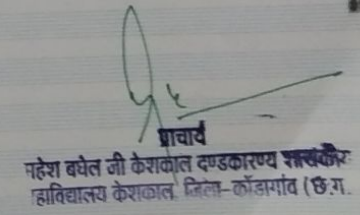 प्राचार्य
महेश बघेल जी केशकाल दण्डकारण्य शासकीय
महाविद्यालय केशकाल जिला-कोंडागांव (छ.ग.